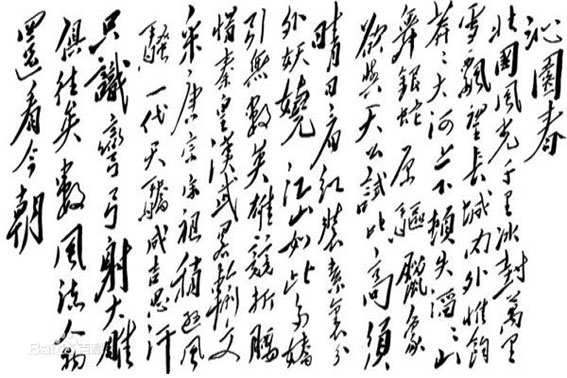 沁園春
北國風光千里冰封萬里
雪飄望長城内外惟餘
莽〻大河上下頓失滔〻山
舞銀蛇原驅臘象
欲與天公試比高須
晴日看紅裝素裹分
外妖嬈江山如此多嬌
引無數英雄競折腰
惜秦皇漢武略輸文
采唐宗宋祖稍遜風
騷一代天驕成吉思汗
只識彎弓射大雕
俱往矣數風流人物
還看今朝